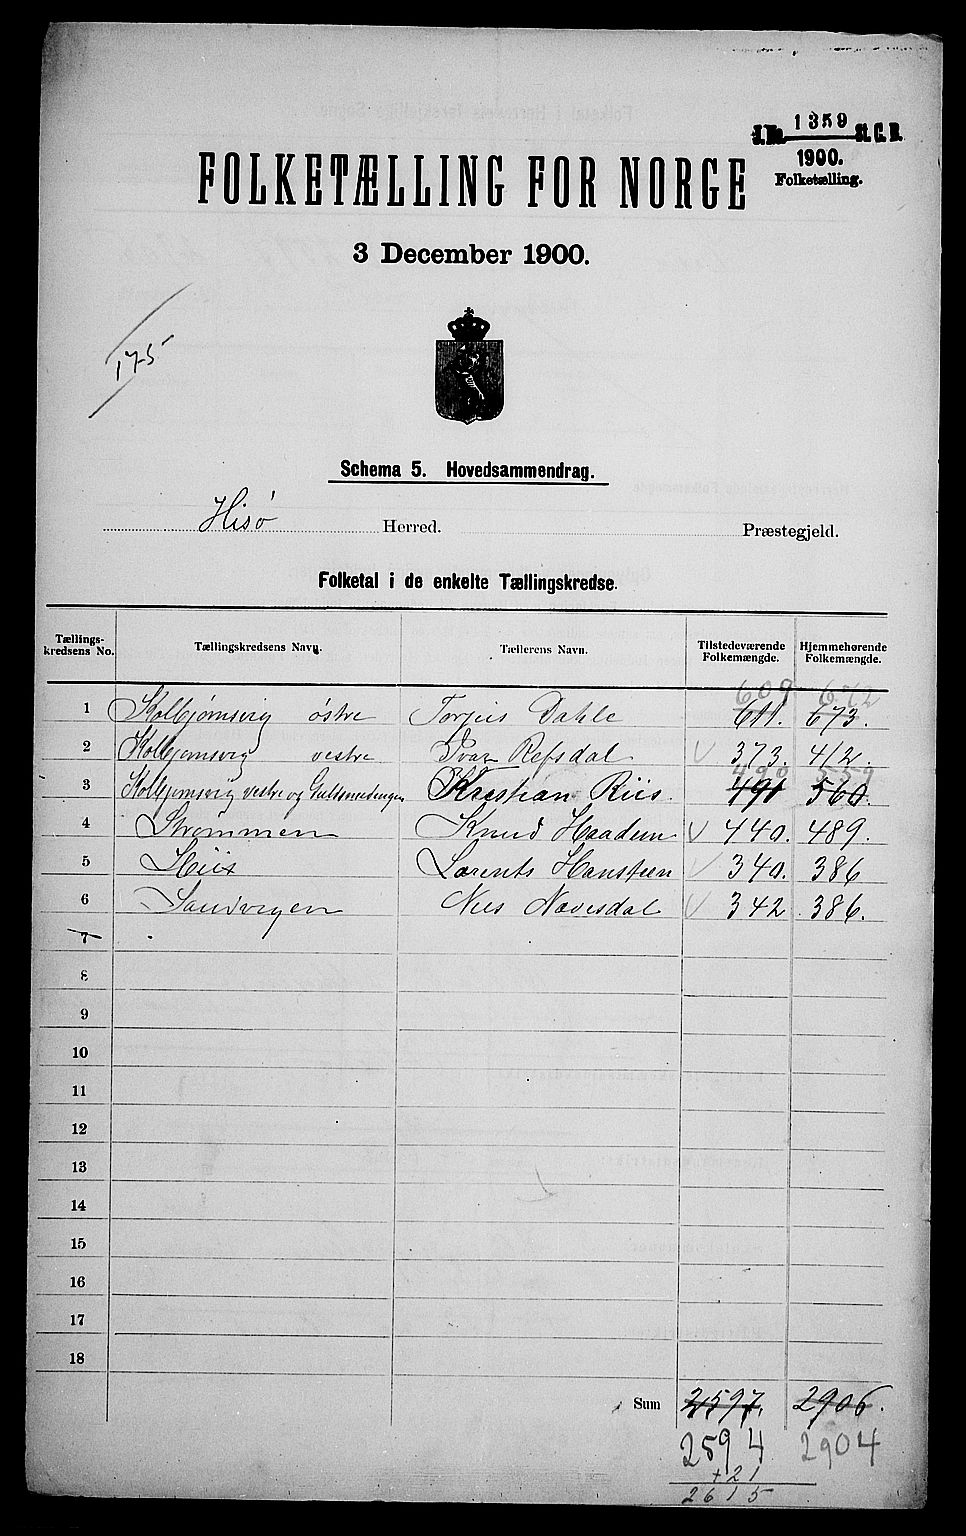 J.No. 1359 St. C. B.
1900.
Folketælling.
FOLKETÆLLING FOR NORGE
3 December 1900.
175
Schema 5. Hovedsammendrag.
Hisø Herred. Præstegjeld.
Folketal i de enkelte Tællingskredse.
Tællings-kredsens No. Tællingskredsens Navn. Tællerens Navn. Tilstedeværende Folkemængde. Hjemmehørende Folkemængde.
609 672
1 Kolbjørnsvig østre Torjus Dahle 611. 673.
2 Kolbjørnsvig vestre Ivar Refsdal V 373. 412.
490 559
3 Kolbjørnsvig vestre og Gulsmedengen Kristian Riis. 491 560.
4 Strømmen Knud Haadem V 440. 489.
5 His Lorents Hansteen V 340. 386
6 Sandvigen Nils Navesdal V 342 386.
7
8
9
10
11
12
13
14
15
16
17
18
Sum 2597. 2906.
2594 2904
+21
2615